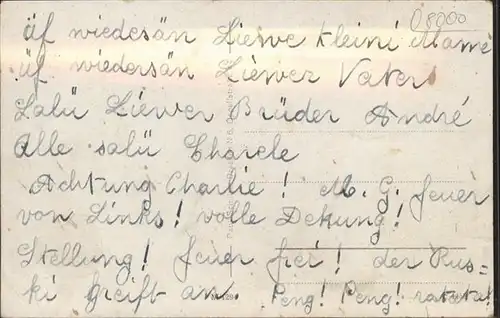 08000
äf wiedesän Liewe kleini Mame
üf wiedersän Liewer Vater
Salü Liewer Brüder André
Alle salü Charele
Achtung Charlie! M. G. feuer
von Links! volle Dekung!
Stellung! feuer frei! der Rus-
ki Greift an. Peng! Peng! ratata!